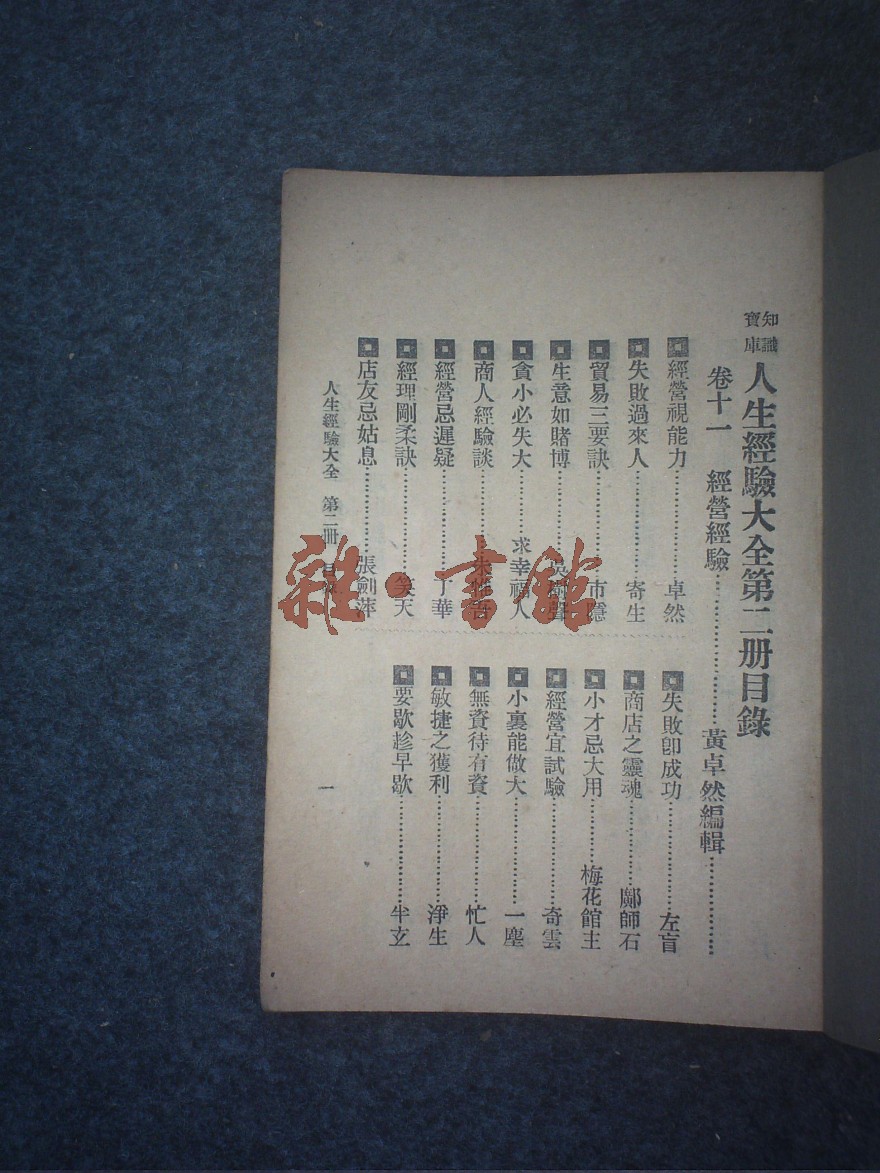 知識
寶庫
人生經驗大全第二册目錄
卷十一 經營經驗……………………黃卓然編輯……………
經營視能力……………卓然
失敗過來人……………寄生
貿易三要訣……………市隱
生意如賭博……………
貪小必失大……………求幸福人
商人經驗談……………
經營忌遲疑……………丁華
經理剛柔訣……………笑天
店友忌姑息……………張劍萍
失敗卽成功……………左盲
商店之靈魂……………鄺師石
小才忌大用……………梅花館主
經營宜試驗……………奇雲
小裏能做大……………一塵
無資待有資……………忙人
敏捷之獲利……………淨生
要歇趁早歇……………半玄
人生經驗大全 第二册 目
一
雜·書館